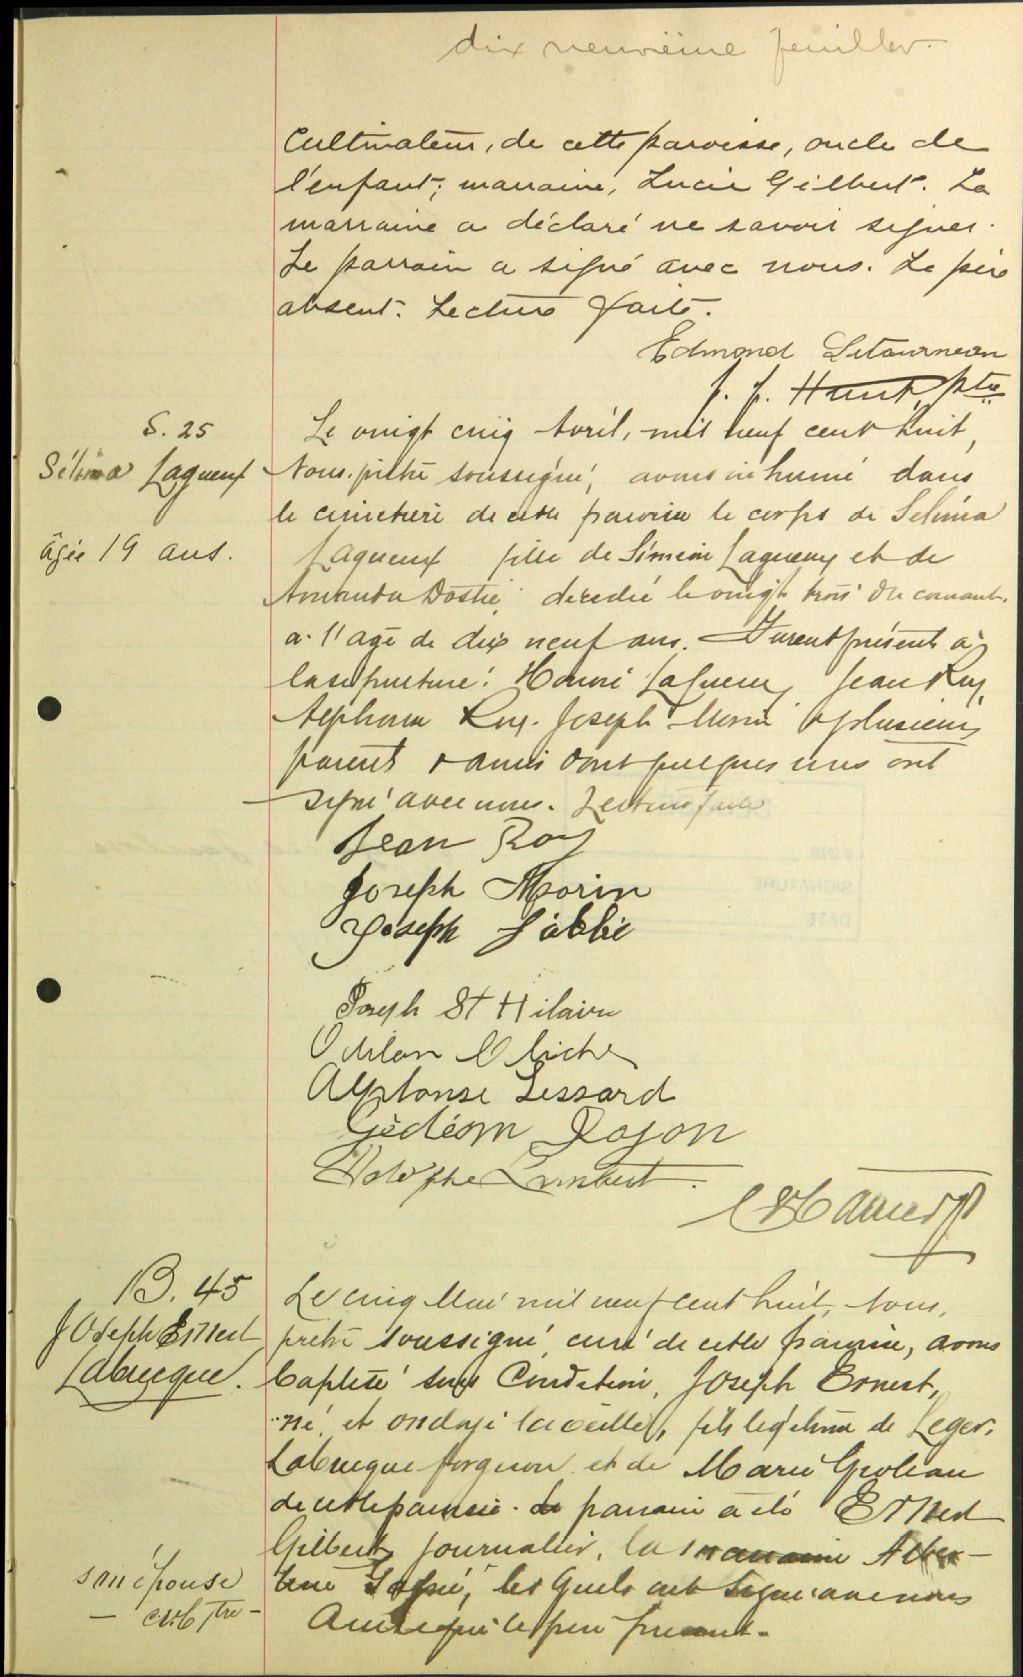 dix neuvième feuillet.
Cultivateur, de cette paroisse, oncle de
l'enfant; marraine, Lucie Gilbert. La
marraine a déclaré ne savoir signer.
Le parrain a signé avec nous. Le père
absent. Lecture faite.
Edmond Letourneau
J. J. Hunt, ptre
S. 25
Sélima Lagueux
âgée 19 ans.
Le vingt cinq Avril, mil neuf cent huit,
Nous prêtre soussigné, avons inhumé dans
le cimetière de cette paroisse le corps de Selima
Lagueux fille de Siméon Lagueux et de
Amanda Dostie décédée le vingt trois du courant
a l'age de dix neuf ans. Furent présents à
la sépulture: Honoré Lagueux Jean Roy,
Alphonse Roy. Joseph Morin & plusieurs
parents & amis dont quelques uns ont
signé avec nous. Lecture faite
Jean Roy
Joseph Morin
Joseph Labbé
SIGNATURE
DATE
Joseph St Hilaire
Odilon Cliche
Alphonse Lessard
Gédéon Dojon
Adolphe Lambert.
B. 45
Joseph Ernest
Labrecque.
Le cinq Mai mil neuf cent huit, Nous,
prêtre soussigné, curé de cette paroisse, avons
baptisé sous Condition, Joseph Ernest,
né, et ondoyé la veille, fils légitime de Leger
Labrecque forgeron et de Marie Groleau
de cette paroisse. Le parrain a été Ernest
Gilbert, journalier, la marraine Alber-
tine, lesquels ont signé avec nous
Ainsi que le père présent.
son épouse
ptre